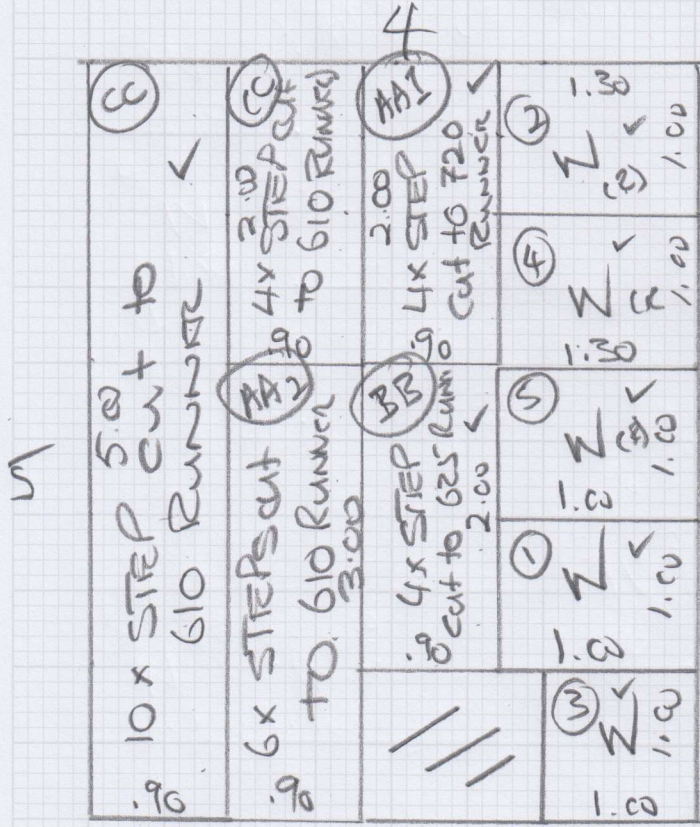 4
5
CC
10 x STEP 5.00
cut to
610 RUNNER ✓
.90
CC
2.00
4x STEP cut
to 610 RUNNER
.90
AA2
6x STEPS cut
to 610 RUNNER
3.00
.90
AA1
2.00
4x STEP
cut to 720
RUNNER ✓
.90
BB
4x STEP
cut to 625 RUNN
2.00 ✓
.90
2
1.30
Σ ✓
(2)
1.00
4
Σ ✓
1.30
1.00
5
Σ ✓
1.00
1.00
1
Σ ✓
1.00
1.00
3
Σ ✓
1.00
1.00